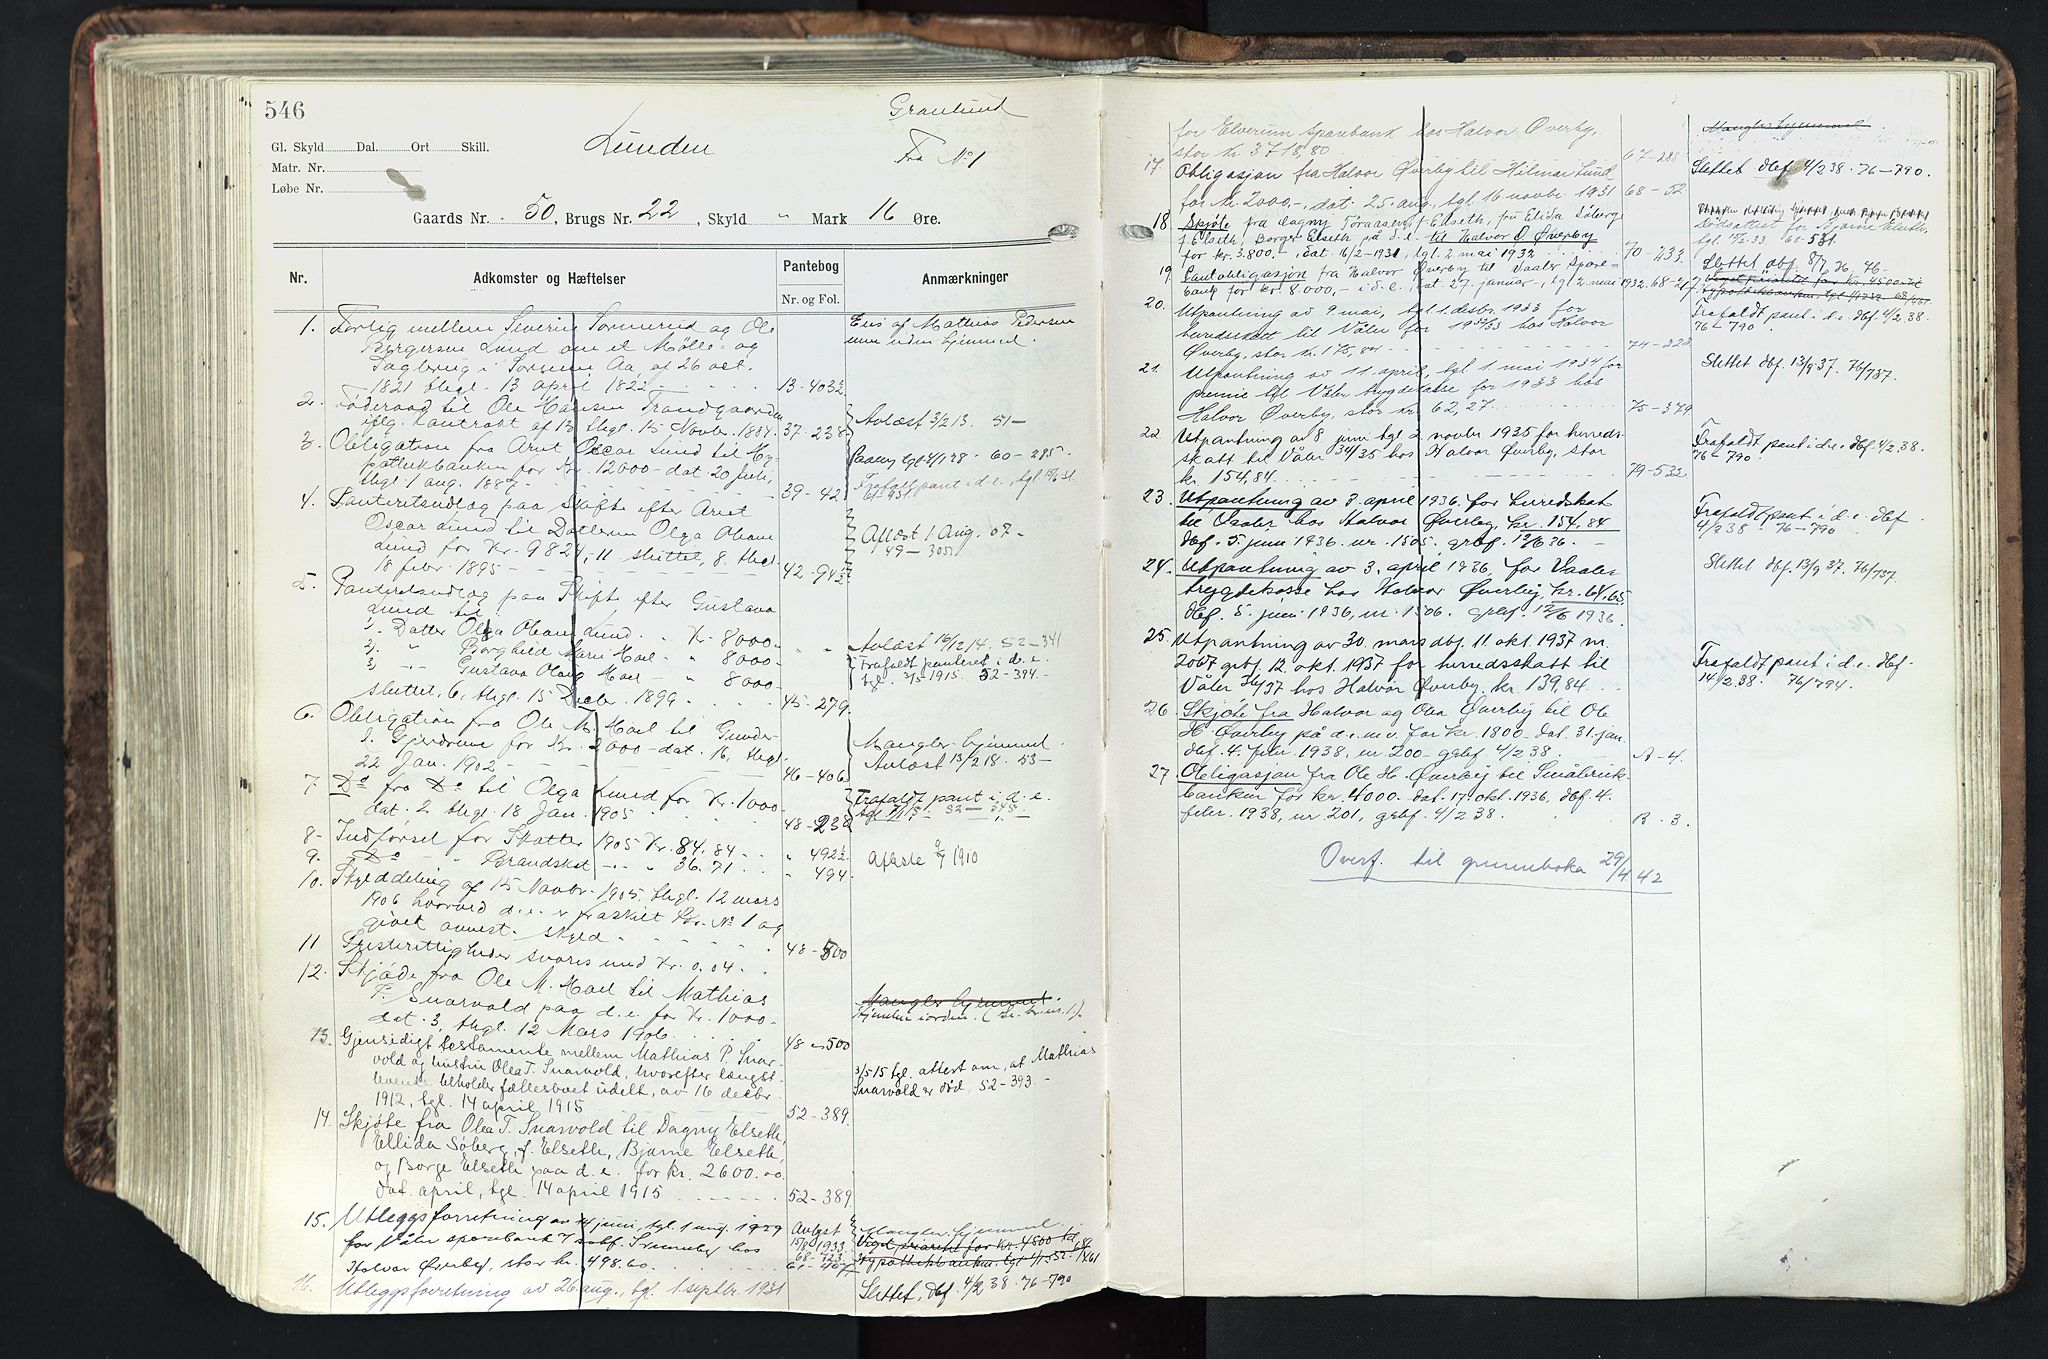 546
Granlund
Gl. Skyld Dal. Ort Skill.
Lunden
Fra No 1
Matr. Nr.
Løbe Nr.
Gaards Nr. 50, Brugs Nr. 22, Skyld " Mark 16 Øre.
Nr.
Adkomster og Hæftelser
Pantebog
Nr. og Fol.
Anmærkninger
1. Forlig mellem Severin Sørmerud og Ole
Bergersen Lund om et Mølle- og
Eies af Mathias Pedersen
men uden hjemmel.
i Aa, af 26 oct.
1821 thgl. 13 april 1822 13-403½
2. Føderaad til Ole Hansen Trandgaarden
iflg. Kontrakt af 13 thgl. 15 Novbr. 1884. 37-238
Avlæst 3/2 13. 51-
3. Obligation fra Arnt Oscar Lund til Hy-
pothekbanken for Kr. 12000- dat. 20 Juli,
thgl 1 aug. 1887 39-42
60-285
Frafaldt pant i d.e., tgl
4. Panteretsudlæg paa Skifte efter Arnt
Oscar Lund til Datteren Olga Oleane
Lund for Kr. 9824, 11 sluttet, 8. thgl.
18 febr. 1895 42-94
Aflæst 1 Aug. 07-
49-305
5. Panteretsudlæg paa Skifte efter Gustava
Lund til:
1. Datter Olga Oleane Lund. " Kr. 8000-
2, " Borghild Karen Moel - " 8000-
3, -"- Gustava Olava Moel - " 8000-
sluttet, 6, thgl. 15 Decbr. 1899 45-279.
Avlæst 16/12 14. 52-341
Frafaldt panteret i d.e.
tgl. 3/5 1915. 52-394.-
6. Obligation fra Ole M. Moel til Gunder
J. Gjerdrum for Kr. 2000- dat. 16, thgl.
22 Jan. 1902 46-406
Mangler hjemmel.
Avlæst 13/2 18. 53-
7. Do fra Do til Olga Lund for Kr. 1000-
dat. 2 thgl. 18 Jan. 1905. 48-238
Frafaldt pant i d.e.
8- Indførsel for Skatter 1905 Kr. 84.84 " 492½
9. -Do- Brandskat -"- " 36.71 " 494.
Aflæste 1910
10. Skylddeling af 15 Novbr. 1905, thgl. 12 mars
1906 hvorved d.e. er fraskilt Br. No 1 og
givet anvist. skyld. 48-500
11 Presterettigheder svares med Kr. 0.04.
12. Skjøde fra Ole M. Moel til Mathias
P. Snarvold paa d.e. for Kr. 1000-
dat. 3, thgl. 12 Mars 1906. 48-500
Mangler hjemmel.
Hjemmelen iorden. (Se br. nr. 1).
13. Gjensidigt testamente mellem Mathias P. Snar-
vold og hustru Olea T. Snarvold, hvorefter længst-
levende beholder fællesboet udelt, av 16 decbr.
1912, tgl. 14 april 1915 52-389.
3/5 15 tgl. attest om, at Mathias
Snarvold er død, 52-393.-
14. Skjøte fra Olea T. Snarvold til Dagny Elseth,
Ellida Søberg, f. Elseth, Bjarne Elseth,
og Borge Elseth paa d.e. for kr. 2600.00
dat. april, tgl. 14 april 1915 52-389
15. Utlegsforretning av 14 juni, tgl. 1 aug. 1929
for Våler sparebank
Halvor Øverby, stor kr. 498.60.
Avlyst
1933
68-723
Mangler hjemmel.
Veget prioritet for kr. 4500 til
Hypothekbanken.
16. Utleggsforretning av 26 aug., tgl. 1 septbr. 1931
Slettet, dbf. 4/2 38. 76-790
for Elverum Sparebank hos Halvor Øverby,
stor kr. 3718,80 67-288
Mangler hjemmel.
17. Obligasjon fra Halvor Øverby til Hilmar Lund
for kr. 2000,-, dat. 25 aug., tgl. 16 novbr. 1931 68-52
Slettet dbf. 4/2 38. 76-790.
18. Skjøte fra Dagny Toraasen f. Elseth, fru Elida Søberg
f. Elseth, Borger Elseth på d.e. til Halvor O. Øverby
for kr. 3.800.-, dat. 16/2-1931, tgl. 2 mai 1932 70-233.
Dødsattest for Bjarne Elseth,
19. Pantobligasjon fra Halvor Øverby til Vaaler Spare-
bank for kr. 8.000,- i d.e., dat. 27. januar, tgl. 2. mai 1932. 68-
Slettet dbf. 8/7 36. 76-
Veget prioritet for kr. 4500 til
20. Utpantning av 9 mai, tgl. 1. desbr. 1933 for
herredsskatt til Våler for 1932/33 hos Halvor
Øverby, stor kr. 175,84 74-223
Frafaldt pant i d.e. dbf. 4/2 38.
76-790.
21. Utpantning av 11. april, tgl. 1. mai 1934 for
premie til Våler trygdekasse for 1933 hos
Halvor Øverby, stor kr. 62,27 75-379
Slettet dbf. 13/9 37. 76/787.
22. Utpantning av 8 juni tgl. 2 novbr 1935 for herreds-
skatt til Våler 34/35 hos Halvor Øverby, stor
kr. 154,84 79-532
Frafaldt pant i d.e. dbf. 4/2 38.
76-790.
23. Utpantning av 3. april 1936 for herredskat
til Vaaler hos Halvor Øverby, kr. 154.84
dbf. 5. juni 1936. nr. 1505, grbf. 12/6 36. -
Frafaldt pant i d.e. dbf.
4/2 38 76-790.
24. Utpantning av 3. april 1936 for Vaaler
trygdekasse hos Halvor Øverby, kr. 64,65.
dbf. 5. juni 1936, nr. 1506. grbf. 12/6 1936.
Slettet dbf. 13/9 37. 76/737.
25. Utpantning av 30. mars dbf. 11. okt. 1937 nr.
2067 grbf. 12. okt. 1937 for herredsskatt til
Våler 36/37 hos Halvor Øverby, kr. 139,84
Frafaldt pant i d.e. dbf.
14/2. 38. 76/794.
26. Skjøte fra Halvor og Olea Øverby til Ole
H. Øverby på d.e. m.v. for kr. 1800- dat. 31. jan.
dbf. 4. febr. 1938, nr 200- grbf. 4/2 38. A-4.
27. Obligasjon fra Ole H. Øverby til Småbruk-
banken for kr. 4000. dat. 17. okt. 1936, dbf. 4.
febr. 1938, nr 201, grbf. 4/2 38. B-3.
Overf. til grunnboka 29/4 42